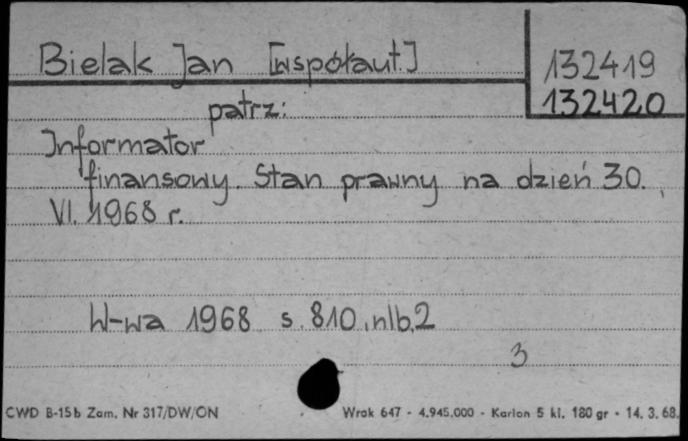 Bielak Jan [współaut.]
132419
132420
patrz:
Informator
finansowy. Stan prawny na dzień 30.
VI. 1968 r.
W-wa 1968 s. 810, nlb. 2
3
CWD B-15b Zam. Nr 317/DW/ON
Wrok 647 - 4.945.000 - Karton 5 kl. 180 gr - 14. 3. 68.